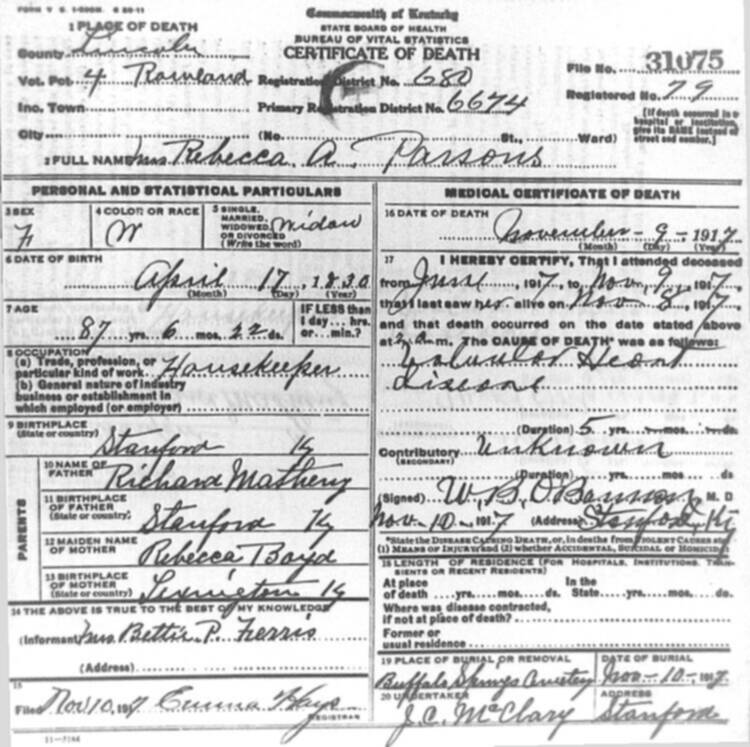 FORM V S. 1-
Commonwealth of Kentucky
STATE BOARD OF HEALTH
BUREAU OF VITAL STATISTICS
CERTIFICATE OF DEATH
1 PLACE OF DEATH
County Lincoln
Vot. Pct. 4 Rowland Registration District No. 680
File No. 31075
Inc. Town Primary Registration District No. 6674
Registered No. 79
City (No. St., Ward)
[If death occurred in a hospital or institution, give its NAME instead of street and number.]
2 FULL NAME Mrs Rebecca A. Parsons
PERSONAL AND STATISTICAL PARTICULARS
3 SEX
F
4 COLOR OR RACE
W
5 SINGLE, MARRIED, WIDOWED, OR DIVORCED (Write the word)
Widow
6 DATE OF BIRTH
April 17, 1830
(Month) (Day) (Year)
7 AGE
87 yrs. 6 mos. 22 ds.
IF LESS than 1 day... hrs. or... min.?
8 OCCUPATION
(a) Trade, profession, or particular kind of work Housekeeper
(b) General nature of industry
business or establishment in
which employed (or employer)
9 BIRTHPLACE
(State or country) Stanford Ky
PARENTS
10 NAME OF FATHER Richard Matheny
11 BIRTHPLACE OF FATHER (State or country) Stanford Ky
12 MAIDEN NAME OF MOTHER Rebecca Boyd
13 BIRTHPLACE OF MOTHER (State or country) Lexington Ky
14 THE ABOVE IS TRUE TO THE BEST OF MY KNOWLEDGE
(Informant Mrs Bettie P. Ferris
(Address)
15
Filed Nov 10, 1917 Emma Hays
REGISTRAR
11-3184
MEDICAL CERTIFICATE OF DEATH
16 DATE OF DEATH
November - 9 - 1917
(Month) (Day) (Year)
17 I HEREBY CERTIFY, That I attended deceased
from June, 1917, to Nov 9, 1917,
that I last saw her alive on Nov 8, 1917
and that death occurred on the date stated above
at 2 a.m. The CAUSE OF DEATH* was as follows:
Valvular Heart
Disease
(Duration) 5 yrs. mos. ds.
Contributory Unknown
(SECONDARY)
(Duration) yrs. mos. ds
(Signed) W. B. O'Bannon, M. D
Nov-10-1917 (Address) Stanford, Ky
*State the DISEASE CAUSING DEATH, or, in deaths from VIOLENT CAUSES state
(1) MEANS OF INJURY; and (2) whether ACCIDENTAL, SUICIDAL or HOMICIDAL
18 LENGTH OF RESIDENCE (FOR HOSPITALS, INSTITUTIONS, TRANSIENTS OR RECENT RESIDENTS)
At place of death yrs. mos. ds. In the State yrs. mos. ds.
Where was disease contracted,
if not at place of death?
Former or
usual residence
19 PLACE OF BURIAL OR REMOVAL
Buffalo Springs Cemetery
DATE OF BURIAL
Nov-10-, 1917
20 UNDERTAKER
J. C. McClary
ADDRESS
Stanford